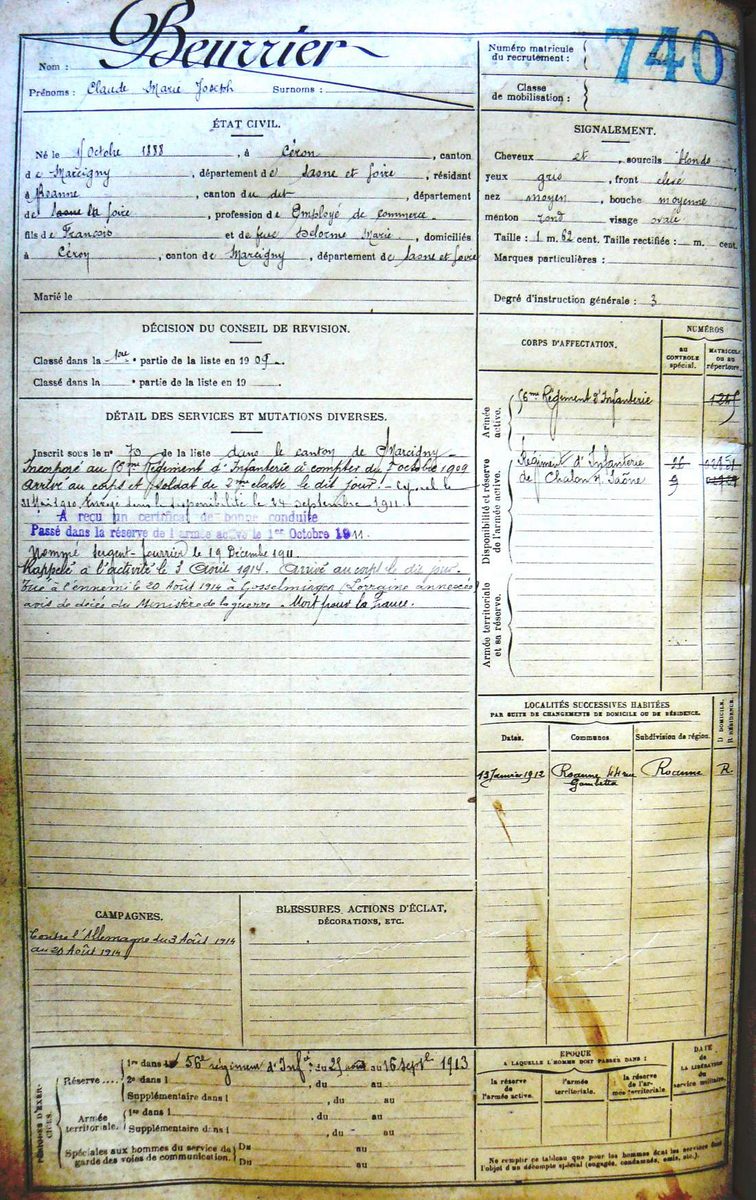 Beurrier
Nom :
Prénoms : Claude Marie Joseph Surnoms :
Numéro matricule
du recrutement :
740
Classe
de mobilisation :
ÉTAT CIVIL.
Né le Octobre 1888, à Céron, canton
de Marcigny, département de Saone et Loire, résidant
à Roanne, canton du dit, département
de la Loire, profession de Employé de commerce
fils de François et de feue Delorme Marie, domiciliés
à Céron, canton de Marcigny, département de Saone et Loire
Marié le
SIGNALEMENT.
Cheveux et sourcils blonds
yeux gris, front élevé
nez moyen, bouche moyenne
menton rond visage ovale
Taille : 1 m. 62 cent. Taille rectifiée : m. cent.
Marques particulières :
Degré d'instruction générale : 3
DÉCISION DU CONSEIL DE REVISION.
Classé dans la 1re partie de la liste en 1909
Classé dans la partie de la liste en 19
DÉTAIL DES SERVICES ET MUTATIONS DIVERSES.
Inscrit sous le n° 70 de la liste dans le canton de Marcigny
Incorporé au 56me Régiment d'Infanterie à compter du octobre 1909
arrivé au corps et soldat de 2me classe le dit jour.
1910. dans la disponibilité le 24 septembre 1911.
A reçu un certificat de bonne conduite
Passé dans la réserve de l'armée active le 1er Octobre 1911.
Nommé Sergent-fourrier le 19 Décembre 1911.
Rappelé à l'activité le 3 Août 1914. Arrivé au corps le dit jour.
Tué à l'ennemi le 20 Août 1914 à Gosselmingen (Lorraine annexée)
avis de décès du Ministère de la guerre. Mort pour la France.
CORPS D'AFFECTATION.
NUMÉROS
AU CONTROLE spécial.
MATRICULE OU AU répertoire.
Armée active.
56me Régiment d'Infanterie
Disponibilité et réserve de l'armée active.
Régiment d'Infanterie
de Chalon s/ Saône
Armée territoriale et sa réserve.
LOCALITÉS SUCCESSIVES HABITÉES
PAR SUITE DE CHANGEMENTS DE DOMICILE OU DE RÉSIDENCE.
Dates. Communes. Subdivision de région. D. DOMICILE. R. RÉSIDENCE.
13 Janvier 1912 Roanne 44 rue Roanne R.
Gambetta
CAMPAGNES.
Contre l'Allemagne du 3 Août 1914
au 20 Août 1914
BLESSURES, ACTIONS D'ÉCLAT,
DÉCORATIONS, ETC.
PÉRIODES D'EXERCICES.
Réserve....
1re dans le 56e régiment d'Infie, du 25 août au 16 septbre 1913
2e dans l , du au
Supplémentaire dans l , du au
Armée territoriale.
1re dans l , du au
Supplémentaire dans l , du au
Spéciales aux hommes du service de
garde des voies de communication.
Du au
Du au
EPOQUE
A LAQUELLE L'HOMME DOIT PASSER DANS :
la réserve de l'armée active.
l'armée territoriale.
la réserve de l'armée territoriale.
DATE de LA LIBÉRATION du service militaire.
Ne remplir ce tableau que pour les hommes dont les services font
l'objet d'un décompte spécial (engagés, condamnés, omis, etc.).